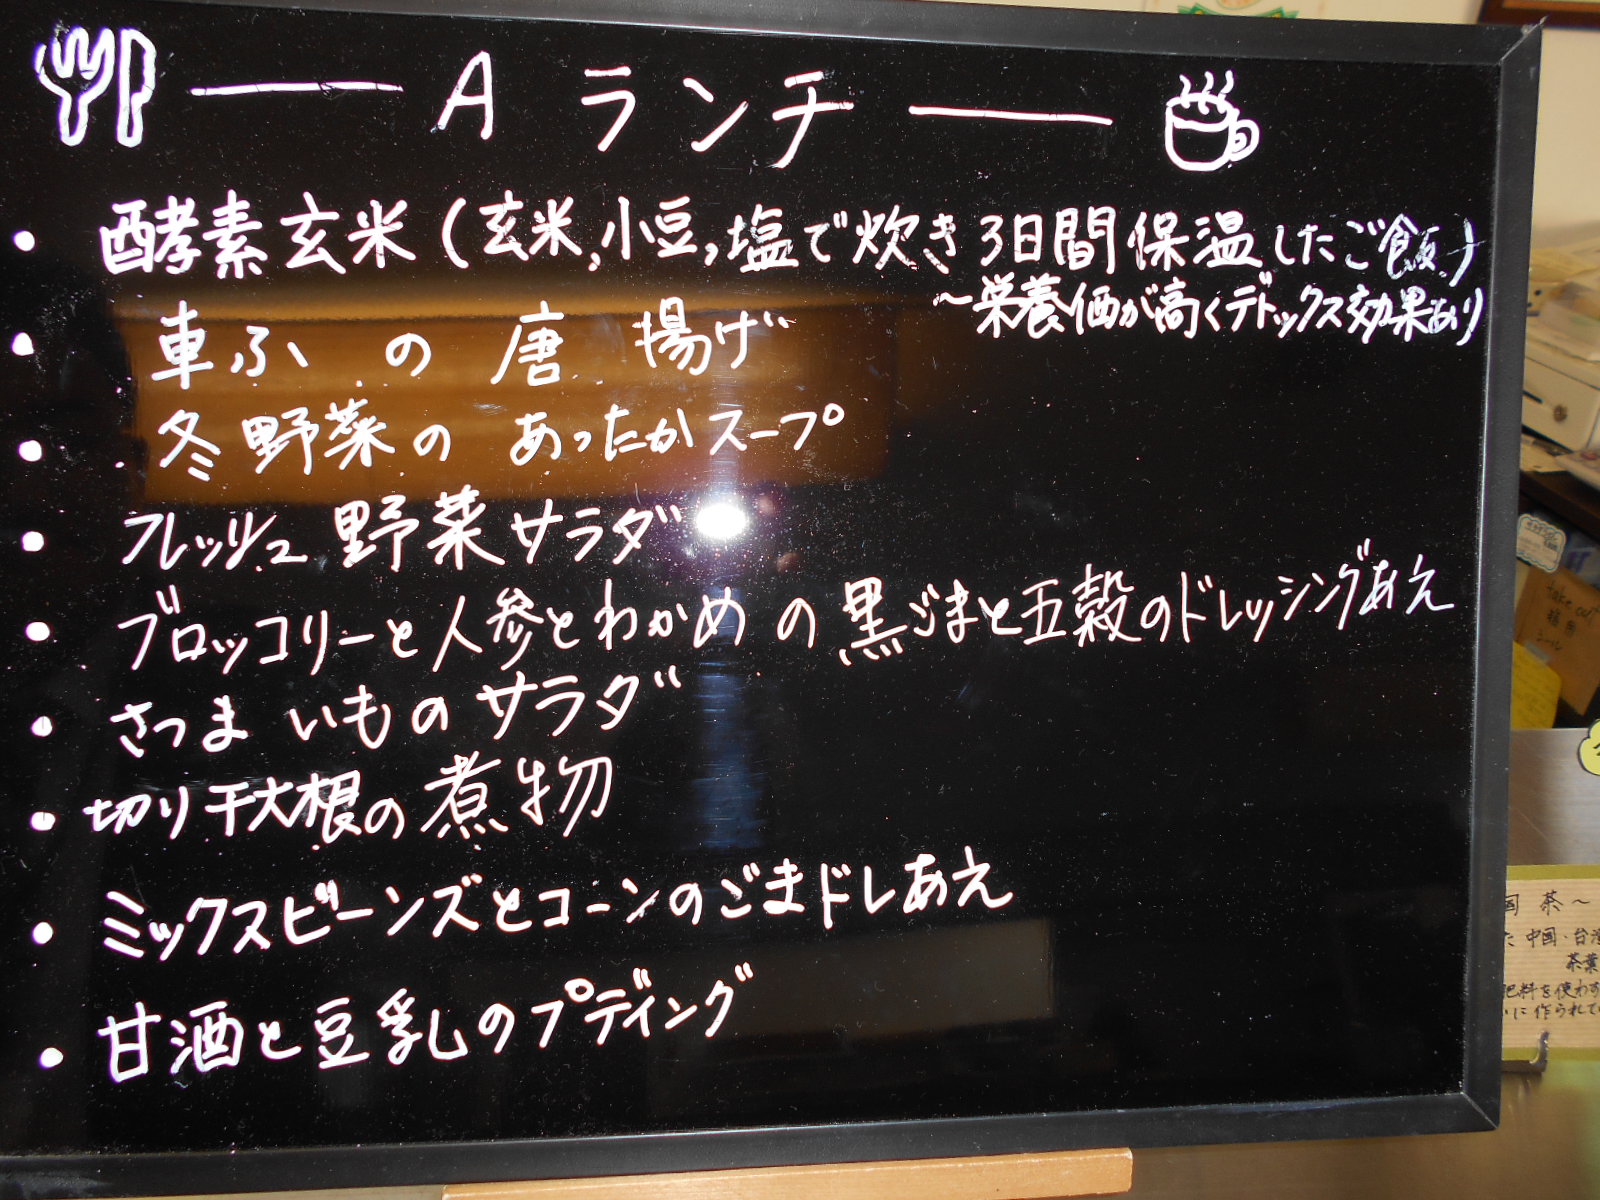 A ランチ
・酵素玄米(玄米,小豆,塩で炊き3日間保温したご飯)
~栄養価が高くデトックス効果あり
・車ふの唐揚げ
・冬野菜のあったかスープ
・フレッシュ野菜サラダ
・ブロッコリーと人参とわかめの黒ごまと五穀のドレッシングあえ
・さつまいものサラダ
・切り干大根の煮物
・ミックスビーンズとコーンのごまドレあえ
・甘酒と豆乳のプディング
take out
国茶~
た中国・台湾
茶葉
肥料を使わず
に作られてい